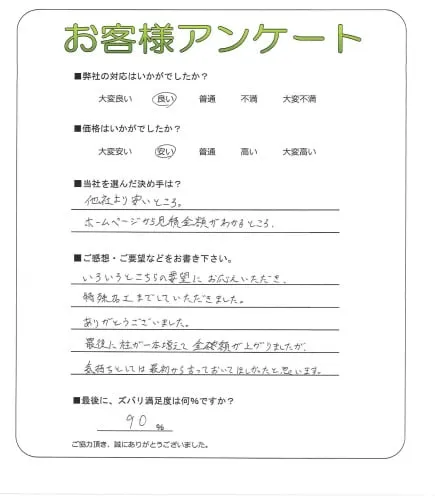 お客様アンケート
■弊社の対応はいかがでしたか?
大変良い 良い 普通 不満 大変不満
■価格はいかがでしたか?
大変安い 安い 普通 高い 大変高い
■当社を選んだ決め手は?
他社より安いところ。
ホームページから見積金額がわかるところ.
■ご感想・ご要望などをお書き下さい。
いろいろとこちらの要望にお応えいただき、
特殊加工までしていただきました。
ありがとうございました。
最後に柱が一本増えて金額が上がりましたが、
気持ちとしては最初から言っておいてほしかったと思います。
■最後に、ズバリ満足度は何%ですか?
90 %
ご協力頂き、誠にありがとうございました。